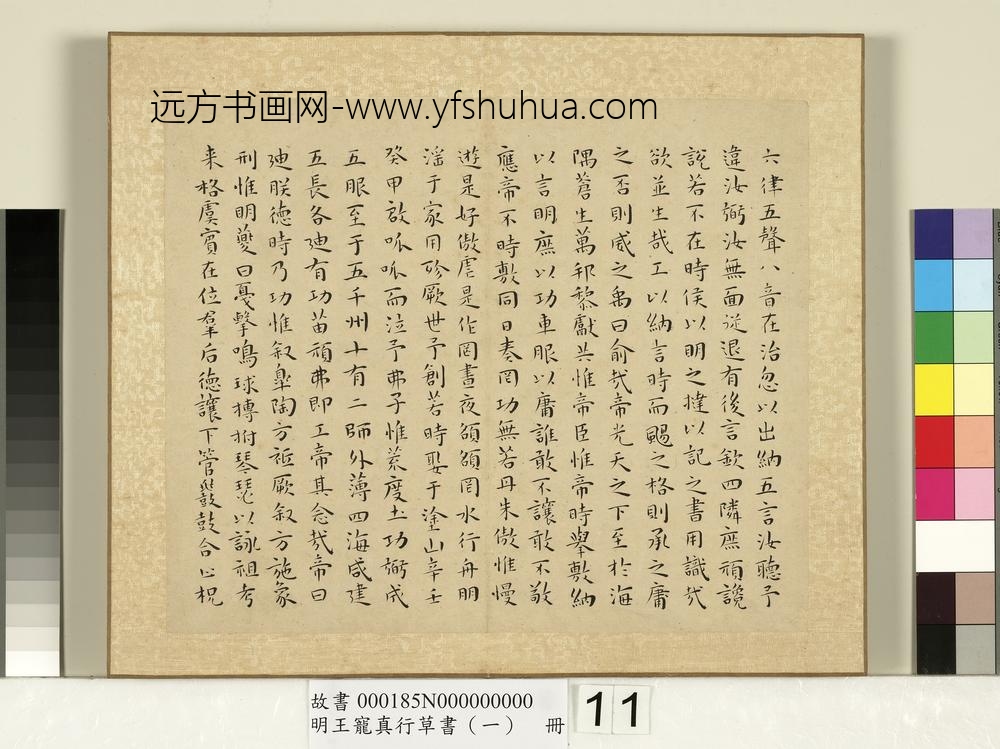 远方书画网-www.yfshuhua.com
六律五聲八音在治忽以出納五言汝聽予
違汝弼汝無面從退有後言欽四隣庶頑讒
說若不在時侯以明之撻以記之書用識哉
欲並生哉工以納言時而颺之格則承之庸
之否則威之禹曰俞哉帝光天之下至於海
隅蒼生萬邦黎獻共惟帝臣惟帝時舉敷納
以言明庶以功車服以庸誰敢不讓敢不敬
應帝不時敷同日奏罔功無若丹朱傲惟慢
遊是好傲虐是作罔晝夜頟頟罔水行舟朋
淫于家用殄厥世予創若時娶于塗山辛壬
癸甲啟呱呱而泣予弗子惟荒度土功弼成
五服至于五千州十有二師外薄四海咸建
五長各迪有功苗頑弗即工帝其念哉帝曰
迪朕德時乃功惟叙臯陶方祗厥叙方施象
刑惟明夔曰戛擊鳴球搏拊琴瑟以詠祖考
来格虞賓在位羣后德讓下管鼗鼓合止柷
故書 000185N000000000
明王寵真行草書（一） 冊
11